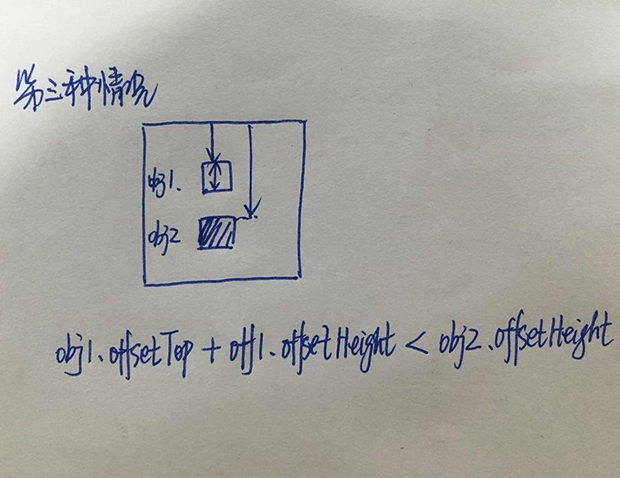 第三种情况
obj1.
obj2
obj1.offsetTop + off1.offsetHeight < obj2.offsetHeight